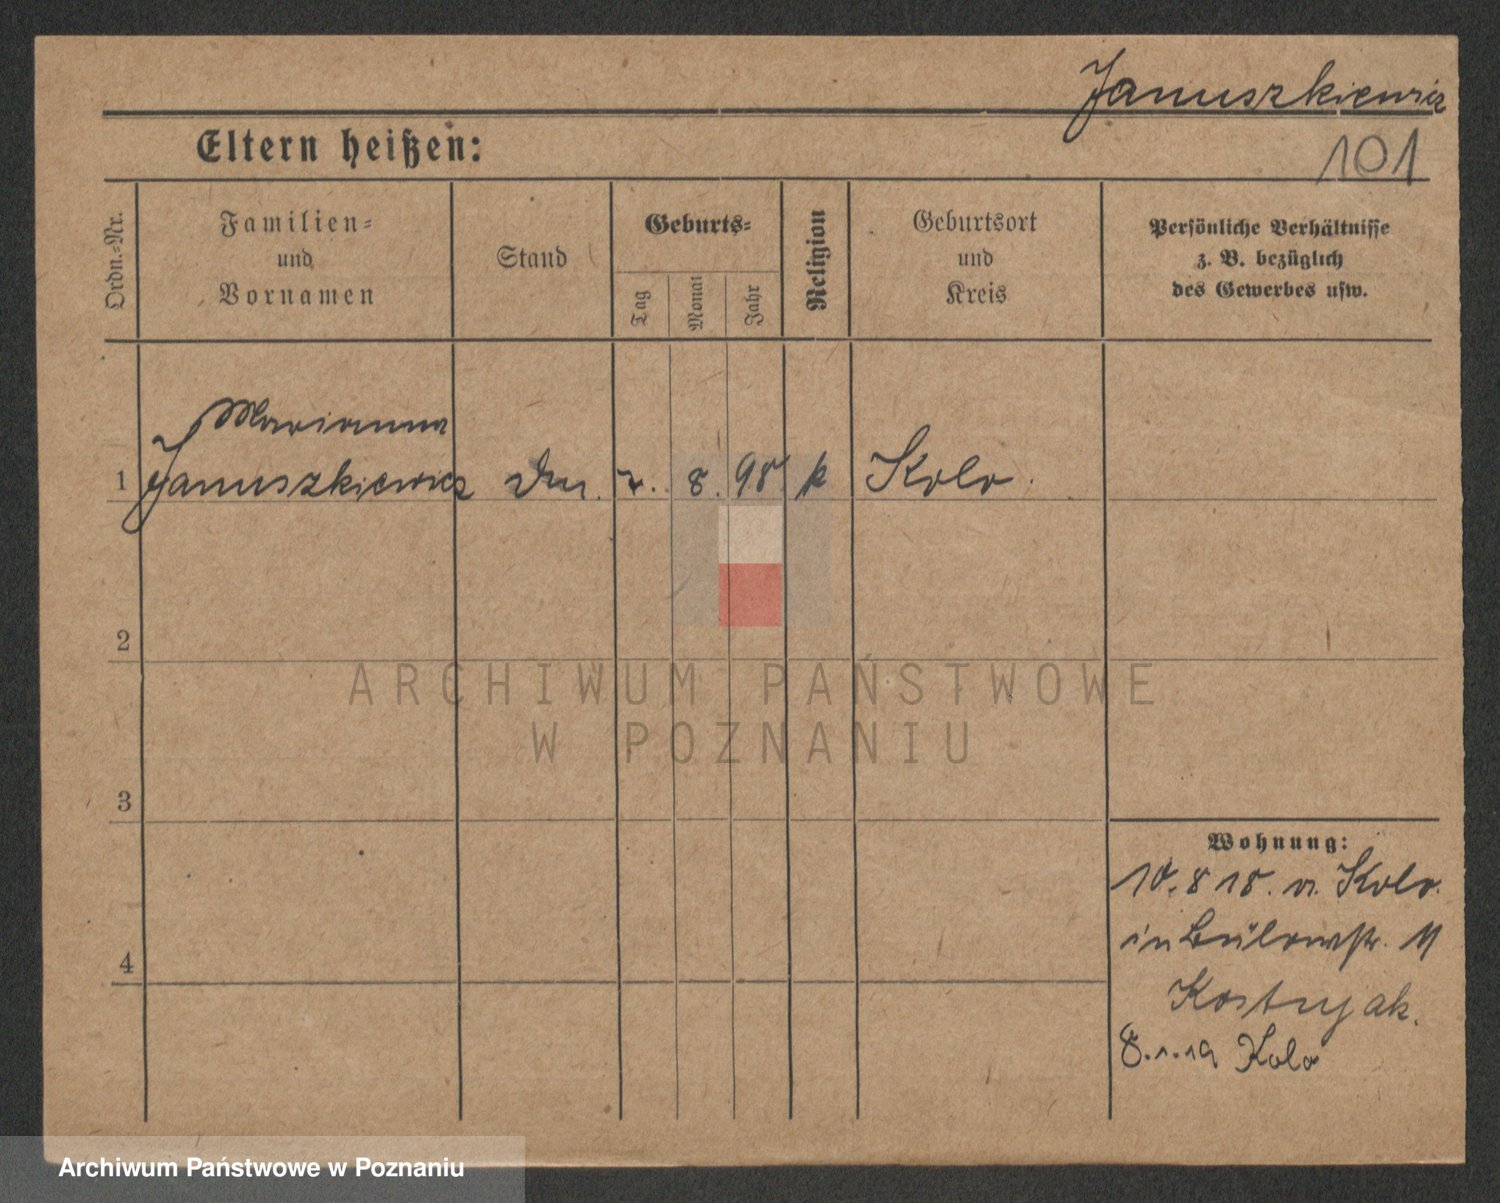 Januszkiewicz
Eltern heißen:
101
Ordn.-Nr.
Familien-
und
Vornamen
Stand
Geburts-
Tag
Monat
Jahr
Religion
Geburtsort
und
Kreis
Persönliche Verhältnisse
z. B. bezüglich
des Gewerbes usw.
Marianna
1 Januszkiewicz 7. 8. 98 k Kolo.
2
ARCHIWUM PAŃSTWOWE
W POZNANIU
3
Wohnung:
10. 8 18. v. Kolo.
in Bülowstr. 11
4
Kostujak.
8. 1. 19 Kolo
Archiwum Państwowe w Poznaniu